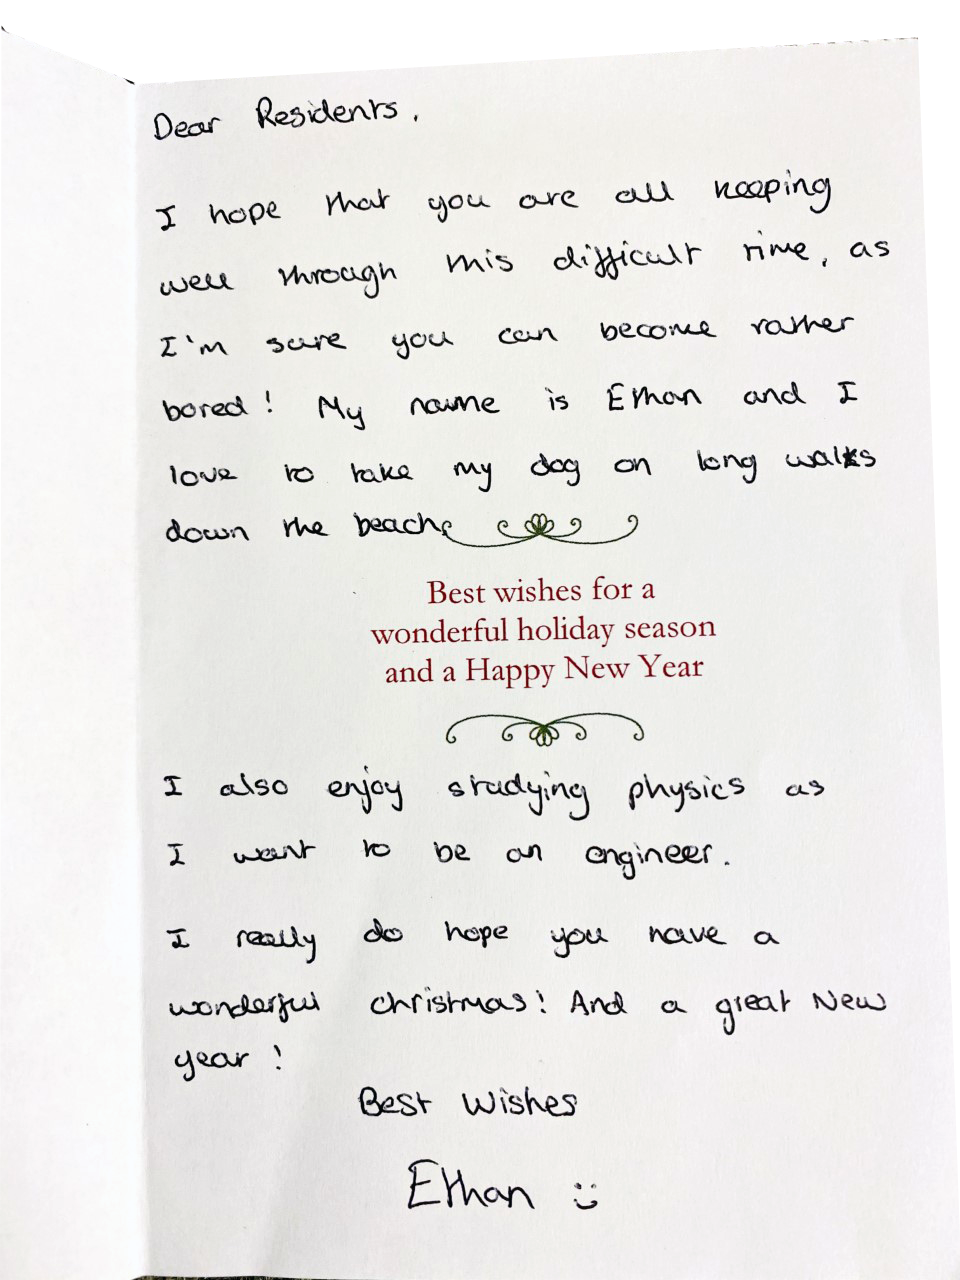 Dear Residents,
I hope that you are all keeping
well through this difficult time, as
I'm sure you can become rather
bored! My name is Ethan and I
love to take my dog on long walks
down the beach.
Best wishes for a
wonderful holiday season
and a Happy New Year
I also enjoy studying physics as
I want to be an engineer.
I really do hope you have a
wonderful christmas! And a great New
year!
Best Wishes
Ethan :)